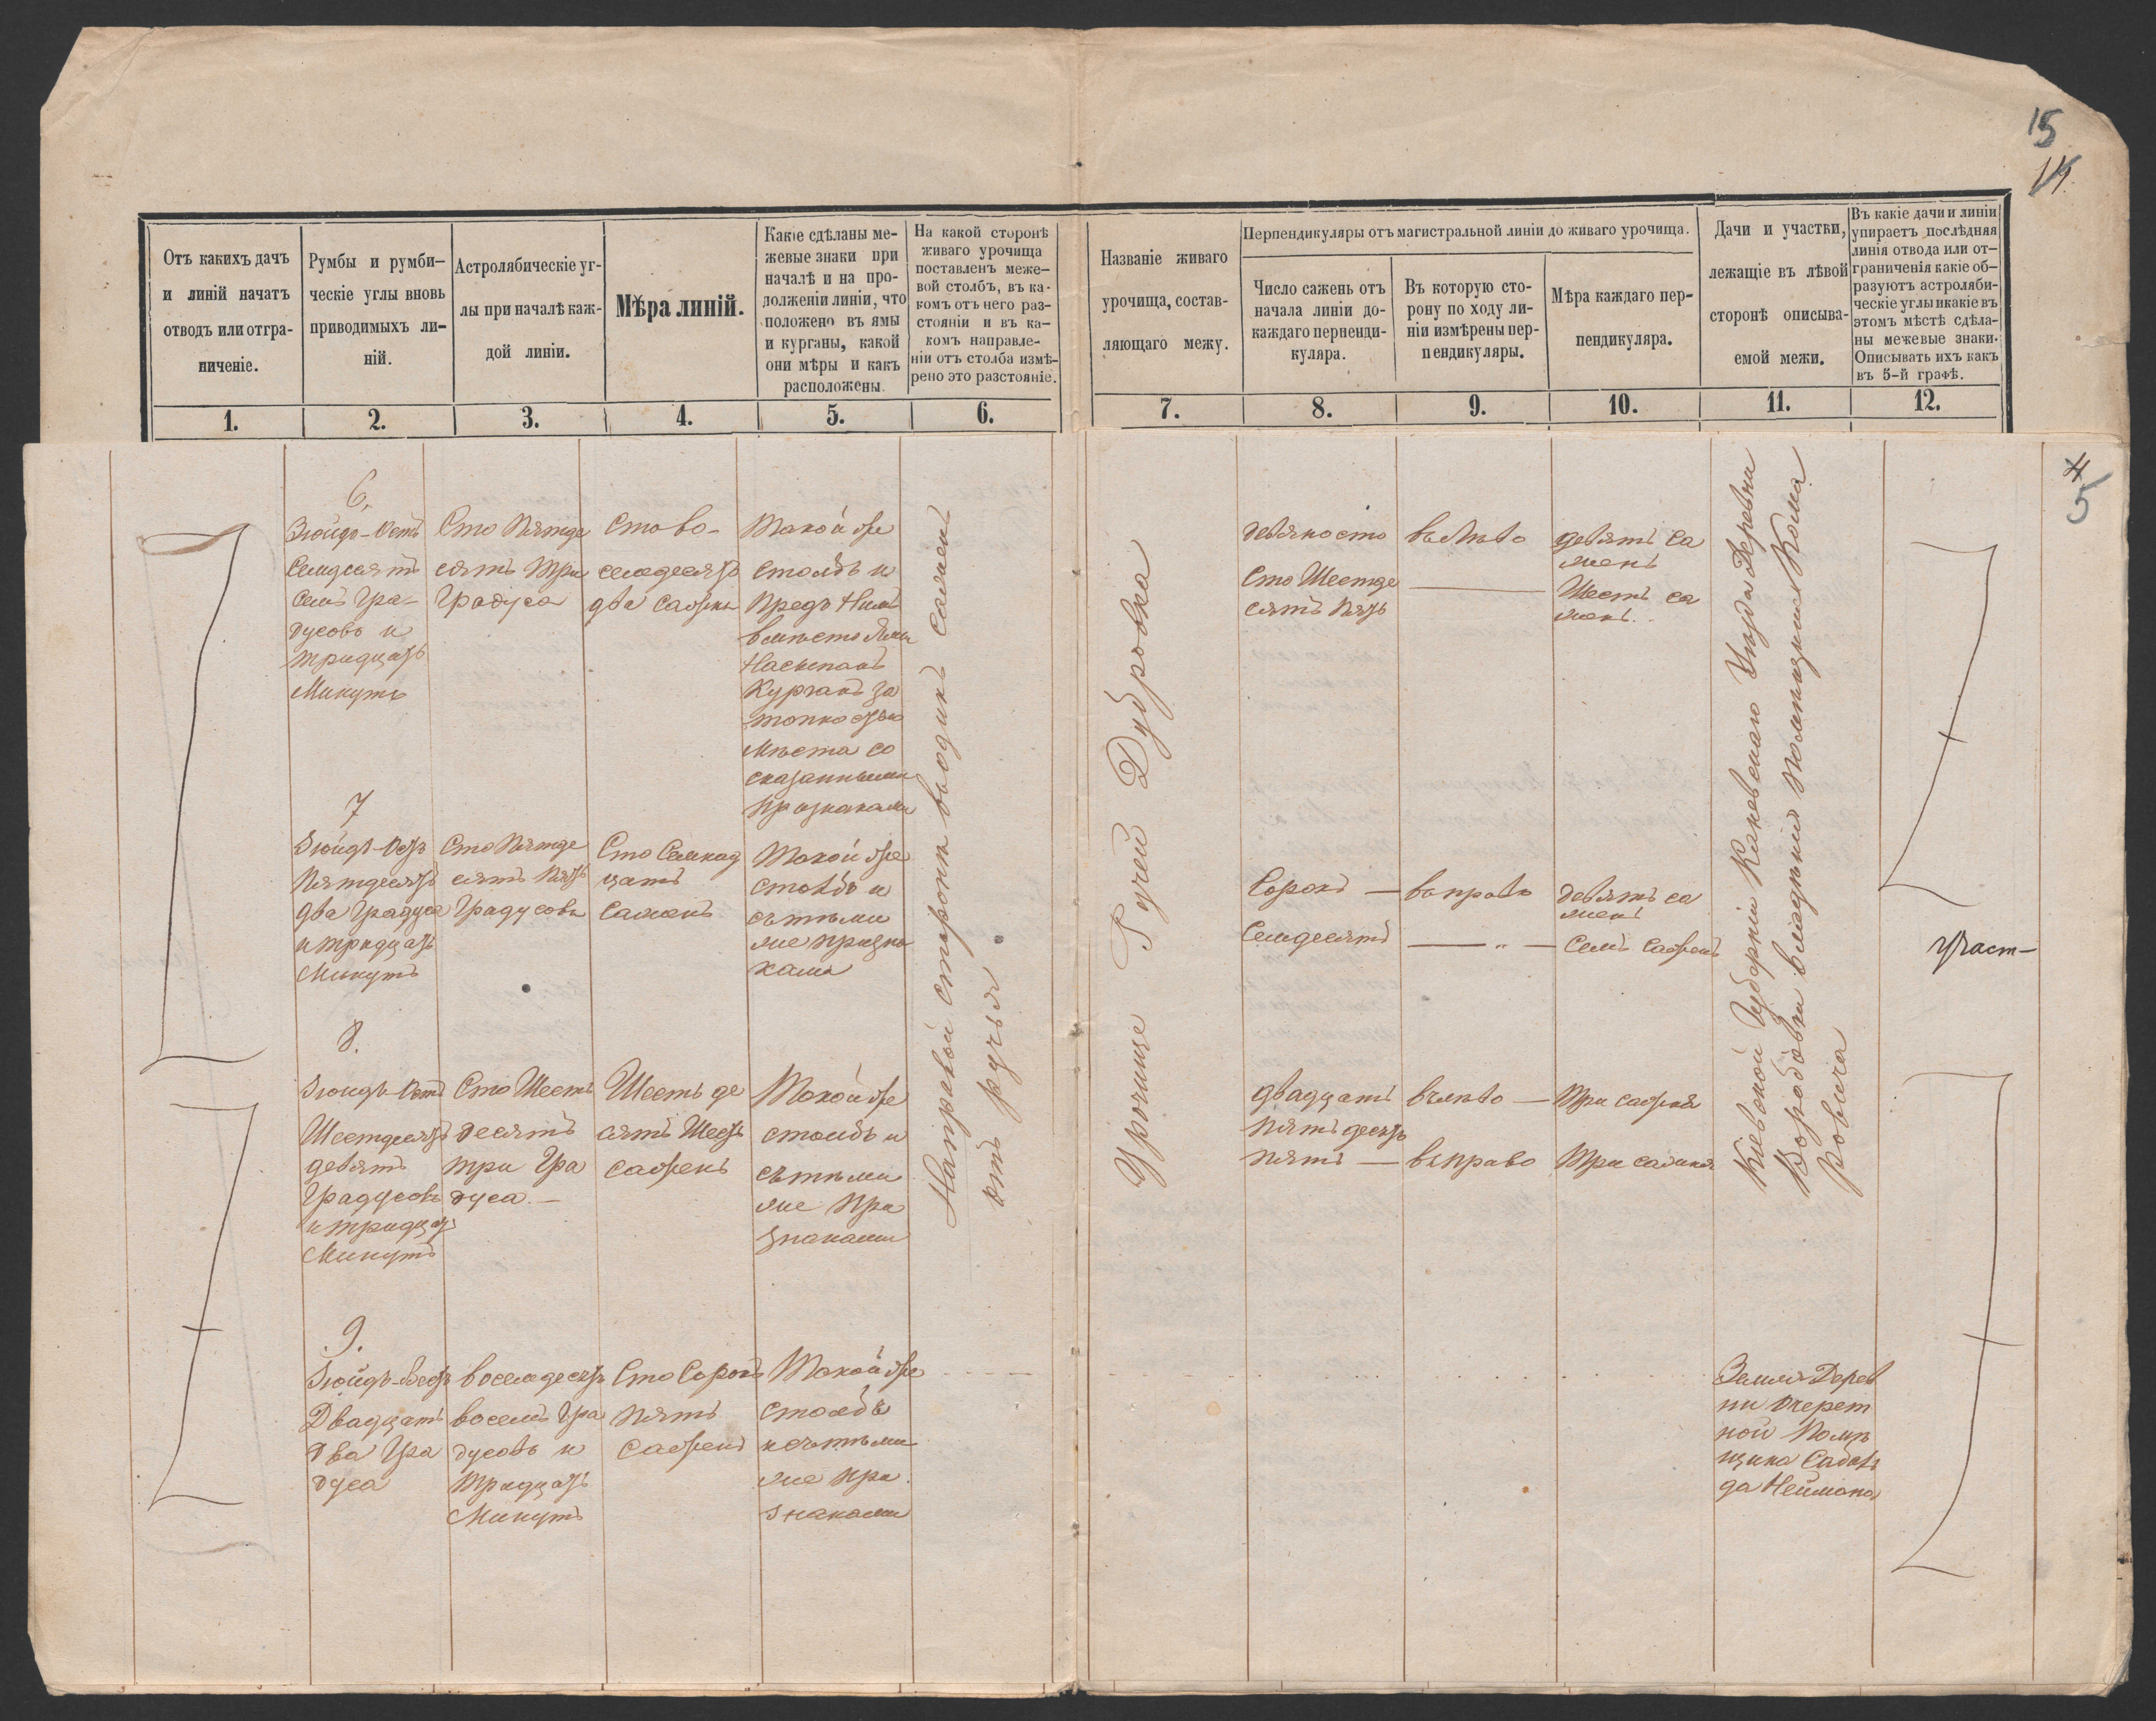 15
14.
Отъ какихъ дачъ
и линій начатъ
отводъ или отгра-
ниченіе.
Румбы и румби-
ческіе углы вновь
приводимыхъ ли-
ній.
Астролябическіе уг-
лы при началѣ каж-
дой линіи.
Мѣра линій.
Какіе сдѣланы ме-
жевые знаки при
началѣ и на про-
должѣніи линіи, что
положено въ ямы
и курганы, какой
они мѣры и какъ
расположены.
На какой сторонѣ
живаго урочища
поставленъ меже-
вой столбъ, въ ка-
комъ отъ него раз-
стояніи и въ ка-
комъ направле-
ніи отъ столба измѣ-
рено это разстояніе.
Названіе живаго
урочища, состав-
ляющаго межу.
Перпендикуляры отъ магистральной линіи до живаго урочища.
Число сажень отъ
начала линіи до-
каждаго перпенди-
куляра.
Въ которую сто-
рону по ходу ли-
ніи измѣрены пер-
пендикуляры.
Мѣра каждаго пер-
пендикуляра.
Дачи и участки,
лежащіе въ лѣвой
сторонѣ описыва-
емой межи.
Въ какіе дачи и линіи
упираетъ послѣдняя
линія отвода или от-
граниченія какіе об-
разуютъ астроляби-
ческіе углы и какіе въ
этомъ мѣстѣ сдѣла-
ны межевые знаки.
Описывать ихъ какъ
въ 5-й графѣ.
1. 2. 3. 4. 5. 6. 7. 8. 9. 10. 11. 12.
4
5
6.
Зюйдъ-Остъ
Семдесятъ
Семь гра-
дусовъ и
тридцать
Минутъ
Сто Пятьде
сятъ Три
Градуса
Сто во-
семдесятъ
два Сажня
Такой же
столбъ и
Предъ Нимъ
вмѣсто Ямы
Насыпанъ
Курганъ за
топкостью
Мѣста со
сказанными
Признаками
девяносто
Сто Шестде
сятъ Пять
въ лѣво
девять са
жень
Шесть са
жень.
7
Зюйдъ-Остъ
Пятдесятъ
два Градуса
и тридцать
Минутъ
Сто Пятде
сятъ Пять
Градусовъ
Сто Семнад
цать
Сажень
Такой же
столбъ и
съ тѣми
же призна
ками
Сорокъ —
Семдесятъ
въ право
— „ —
девять са
жень
Семь Сажень
участ-
8.
Зюйдъ-Остъ
Шестдесятъ
девять
Градусовъ
и тридцать
Минутъ
Сто Шесть
десятъ
три Гра
дуса. —
Шестьде
сятъ Шесть
Сажень
Такой же
столбъ и
съ тѣми
же При
знаками
двадцать
пятьдесятъ
пять —
въ лѣво —
въ право
Три Сажня
Три сажня
9.
Зюйдъ-Вестъ
Двадцать
Два Гра
дуса
восемдесятъ
восемь Гра
дусовъ и
Тридцать
Минутъ
Сто Сорокъ
Пять
Сажень
Такой же
столбъ
и съ тѣми
же При
знаками
На правой сторонѣ въ одинъ сажень
отъ ручья
Урочище Ручей Дубровка
Кіевской Губерніи Каневскаго Уѣзда Деревни
Бородовки владѣнія Помѣщика Кома
ровича
Земля Дерев
ни Очерет
ной Помѣ
щика
да Неймана